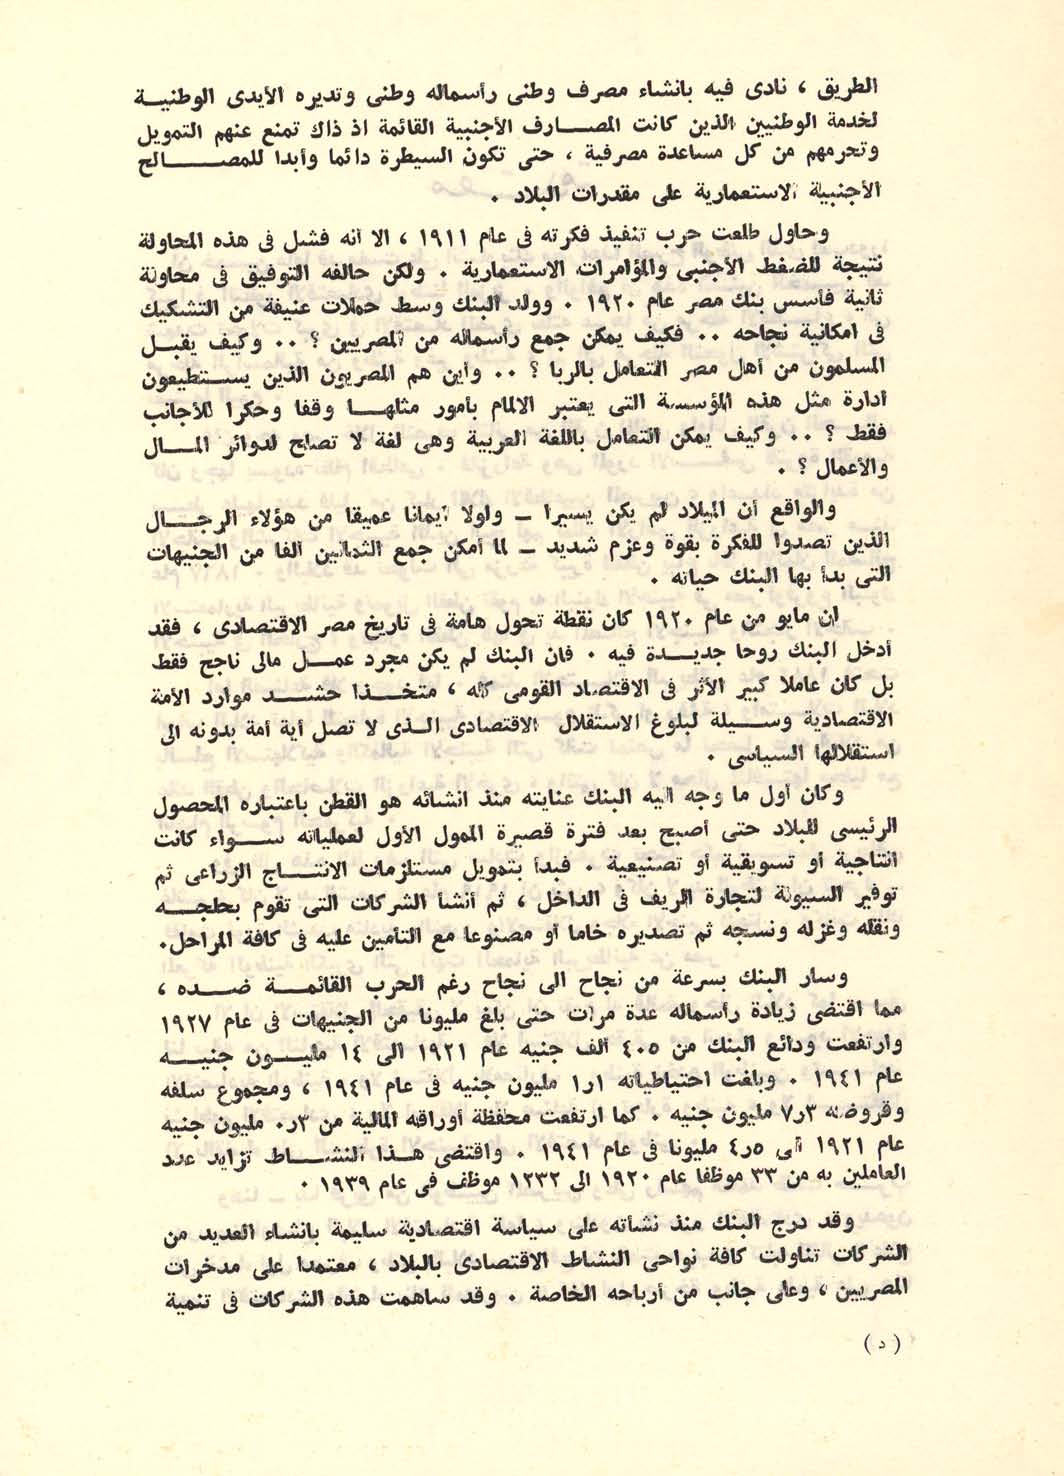 الطريق ، نادى فيه بانشاء مصرف وطنى رأسماله وطنى وتديره الأيدى الوطنية
لخدمة الوطنيين الذين كانت المصارف الأجنبية القائمة اذ ذاك تمنع عنهم التمويل
وتحرمهم من كل مساعدة مصرفية ، حتى تكون السيطرة دائما وأبدا للمصالح
الأجنبية الاستعمارية على مقدرات البلاد .
وحاول طلعت حرب تنفيذ فكرته فى عام ١٩١١ ، الا أنه فشل فى هذه المحاولة
نتيجة للضغط الأجنبى والمؤامرات الاستعمارية . ولكن حالفه التوفيق فى محاولة
ثانية فأسس بنك مصر عام ١٩٢٠ . وولد البنك وسط حملات عنيفة من التشكيك
فى امكانية نجاحه .. فكيف يمكن جمع رأسماله من المصريين ؟ .. وكيف يقبل
المسلمون من أهل مصر التعامل بالربا ؟ .. وأين هم المصريون الذين يستطيعون
ادارة مثل هذه المؤسسة التى يعتبر الالمام بأمور مثلها وقفا وحكرا للأجانب
فقط ؟ .. وكيف يمكن التعامل باللغة العربية وهى لغة لا تصلح لدوائر المال
والأعمال ؟ .
والواقع أن الميلاد لم يكن يسيرا ــ ولولا ايمانا عميقا من هؤلاء الرجال
الذين تصدوا للفكرة بقوة وعزم شديد ــ لما أمكن جمع الثمانين ألفا من الجنيهات
التى بدأ بها البنك حياته .
ان مايو من عام ١٩٢٠ كان نقطة تحول هامة فى تاريخ مصر الاقتصادى ، فقد
أدخل البنك روحا جديدة فيه . فان البنك لم يكن مجرد عمل مالى ناجح فقط
بل كان عاملا كبير الأثر فى الاقتصاد القومى كله ، متخذا حشد موارد الأمة
الاقتصادية وسيلة لبلوغ الاستقلال الاقتصادى الذى لا تصل أية أمة بدونه الى
استقلالها السياسى .
وكان أول ما وجه اليه البنك عنايته منذ انشائه هو القطن باعتباره المحصول
الرئيسى للبلاد حتى أصبح بعد فترة قصيرة الممول الأول لعملياته سواء كانت
انتاجية أو تسويقية أو تصنيعية . فبدأ بتمويل مستلزمات الانتاج الزراعى ثم
توفير السيولة لتجارة الريف فى الداخل ، ثم أنشأ الشركات التى تقوم بحلجه
ونقله وغزله ونسجه ثم تصديره خاما أو مصنوعا مع التأمين عليه فى كافة المراحل.
وسار البنك بسرعة من نجاح الى نجاح رغم الحرب القائمة ضده ،
مما اقتضى زيادة رأسماله عدة مرات حتى بلغ مليونا من الجنيهات فى عام ١٩٢٧
وارتفعت ودائع البنك من ٤٠٥ ألف جنيه عام ١٩٢١ الى ١٤ مليون جنيه
عام ١٩٤١ . وبلغت احتياطياته ١ر١ مليون جنيه فى عام ١٩٤١ ، ومجموع سلفه
وقروضه ٧ر٣ مليون جنيه . كما ارتفعت محفظة أوراقه المالية من ٠ر٣ مليون جنيه
عام ١٩٢١ الى ٤ر٥ مليونا فى عام ١٩٤١ . واقتضى هذا النشاط تزايد عدد
العاملين به من ٣٣ موظفا عام ١٩٢٠ الى ١٢٣٢ موظف فى عام ١٩٣٩ .
وقد درج البنك منذ نشأته على سياسة اقتصادية سليمة بانشاء العديد من
الشركات تناولت كافة نواحى النشاط الاقتصادى بالبلاد ، معتمدا على مدخرات
المصريين ، وعلى جانب من أرباحه الخاصة . وقد ساهمت هذه الشركات فى تنمية
( د )